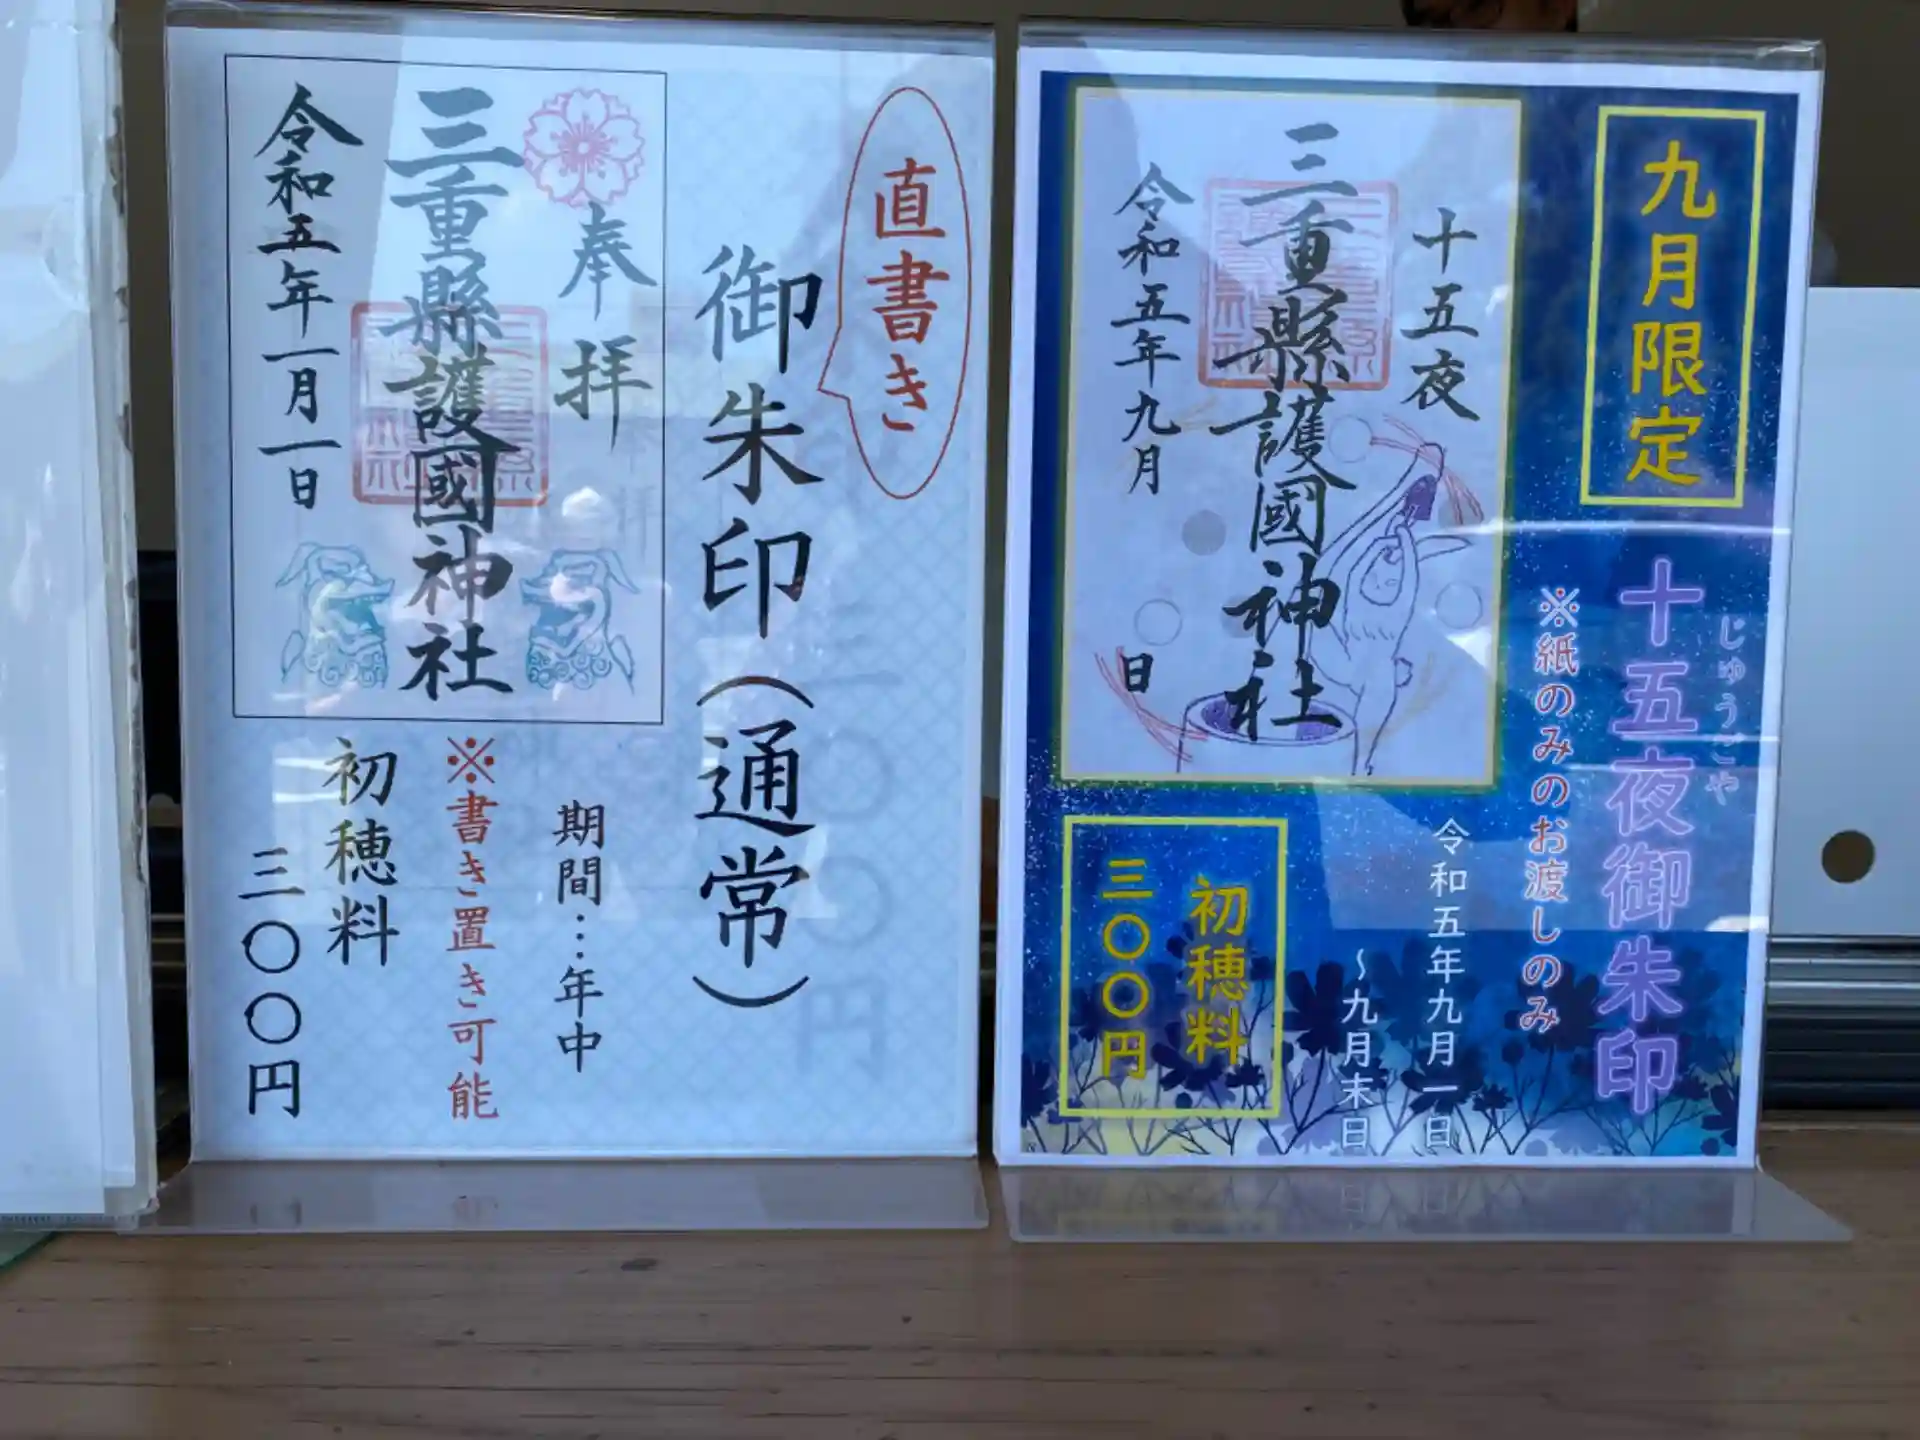 直書き
御朱印(通常)
奉拝
三重縣護國神社
令和五年一月一日
期間…年中
※書き置き可能
初穂料
三〇〇円
九月限定
じゅうごや
十五夜御朱印
※紙のみのお渡しのみ
十五夜
三重縣護國神社
令和五年九月 日
令和五年九月一日
~九月末日
初穂料
三〇〇円